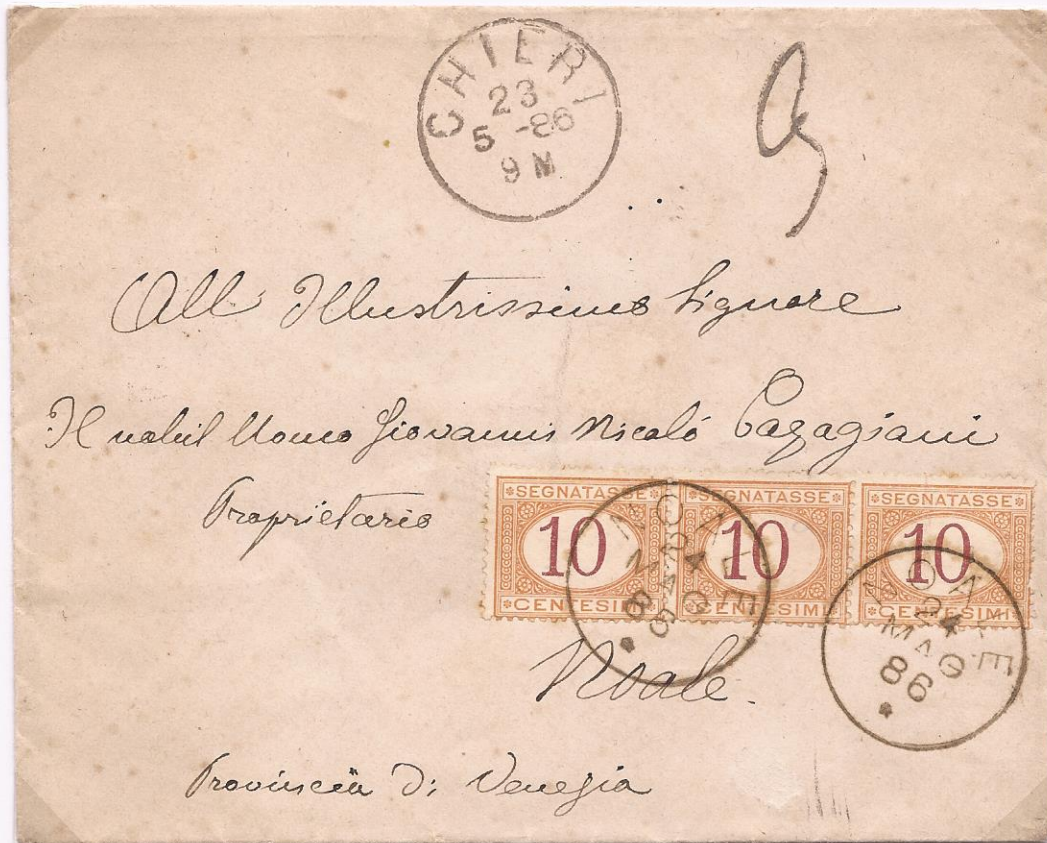 CHIERI
23
5 - 86
9 M
All' Illustrissimo Signore
Il nobil Uomo Giovanni Nicolò
Proprietario
SEGNATASSE SEGNATASSE SEGNATASSE
10 10 10
CENTESIMI CENTESIMI CENTESIMI
NOALE
24
MAG
86
NOALE
24
MAG
86
Noale.
Provincia di Venezia